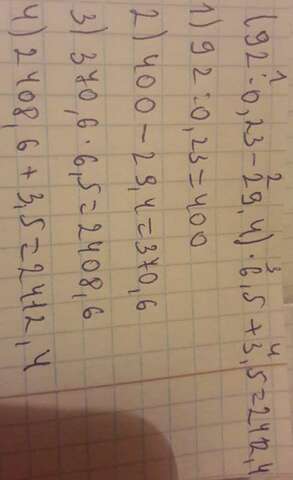 1 2 3 4
(92:0,23-29,4)·6,5+3,5=2412,4
1) 92:0,23=400
2) 400-29,4=370,6
3) 370,6·6,5=2408,6
4) 2408,6+3,5=2412,4